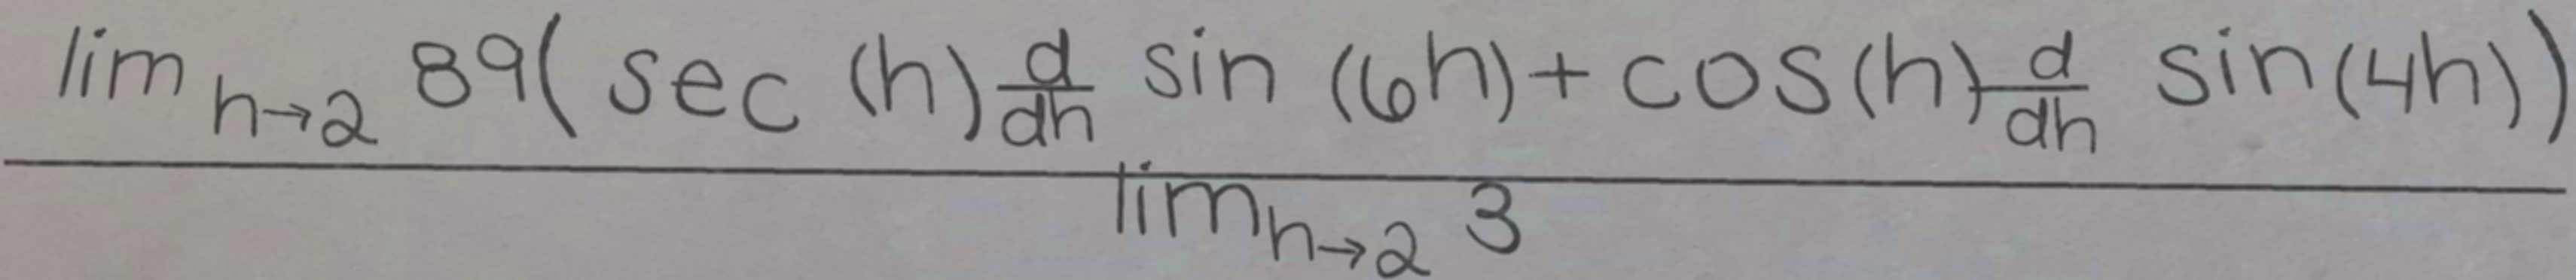 \frac{\lim_{h \to 2} 89 ( \sec (h) \frac{d}{dh} \sin (6h) + \cos(h) \frac{d}{dh} \sin(4h) )}{\lim_{h \to 2} 3}